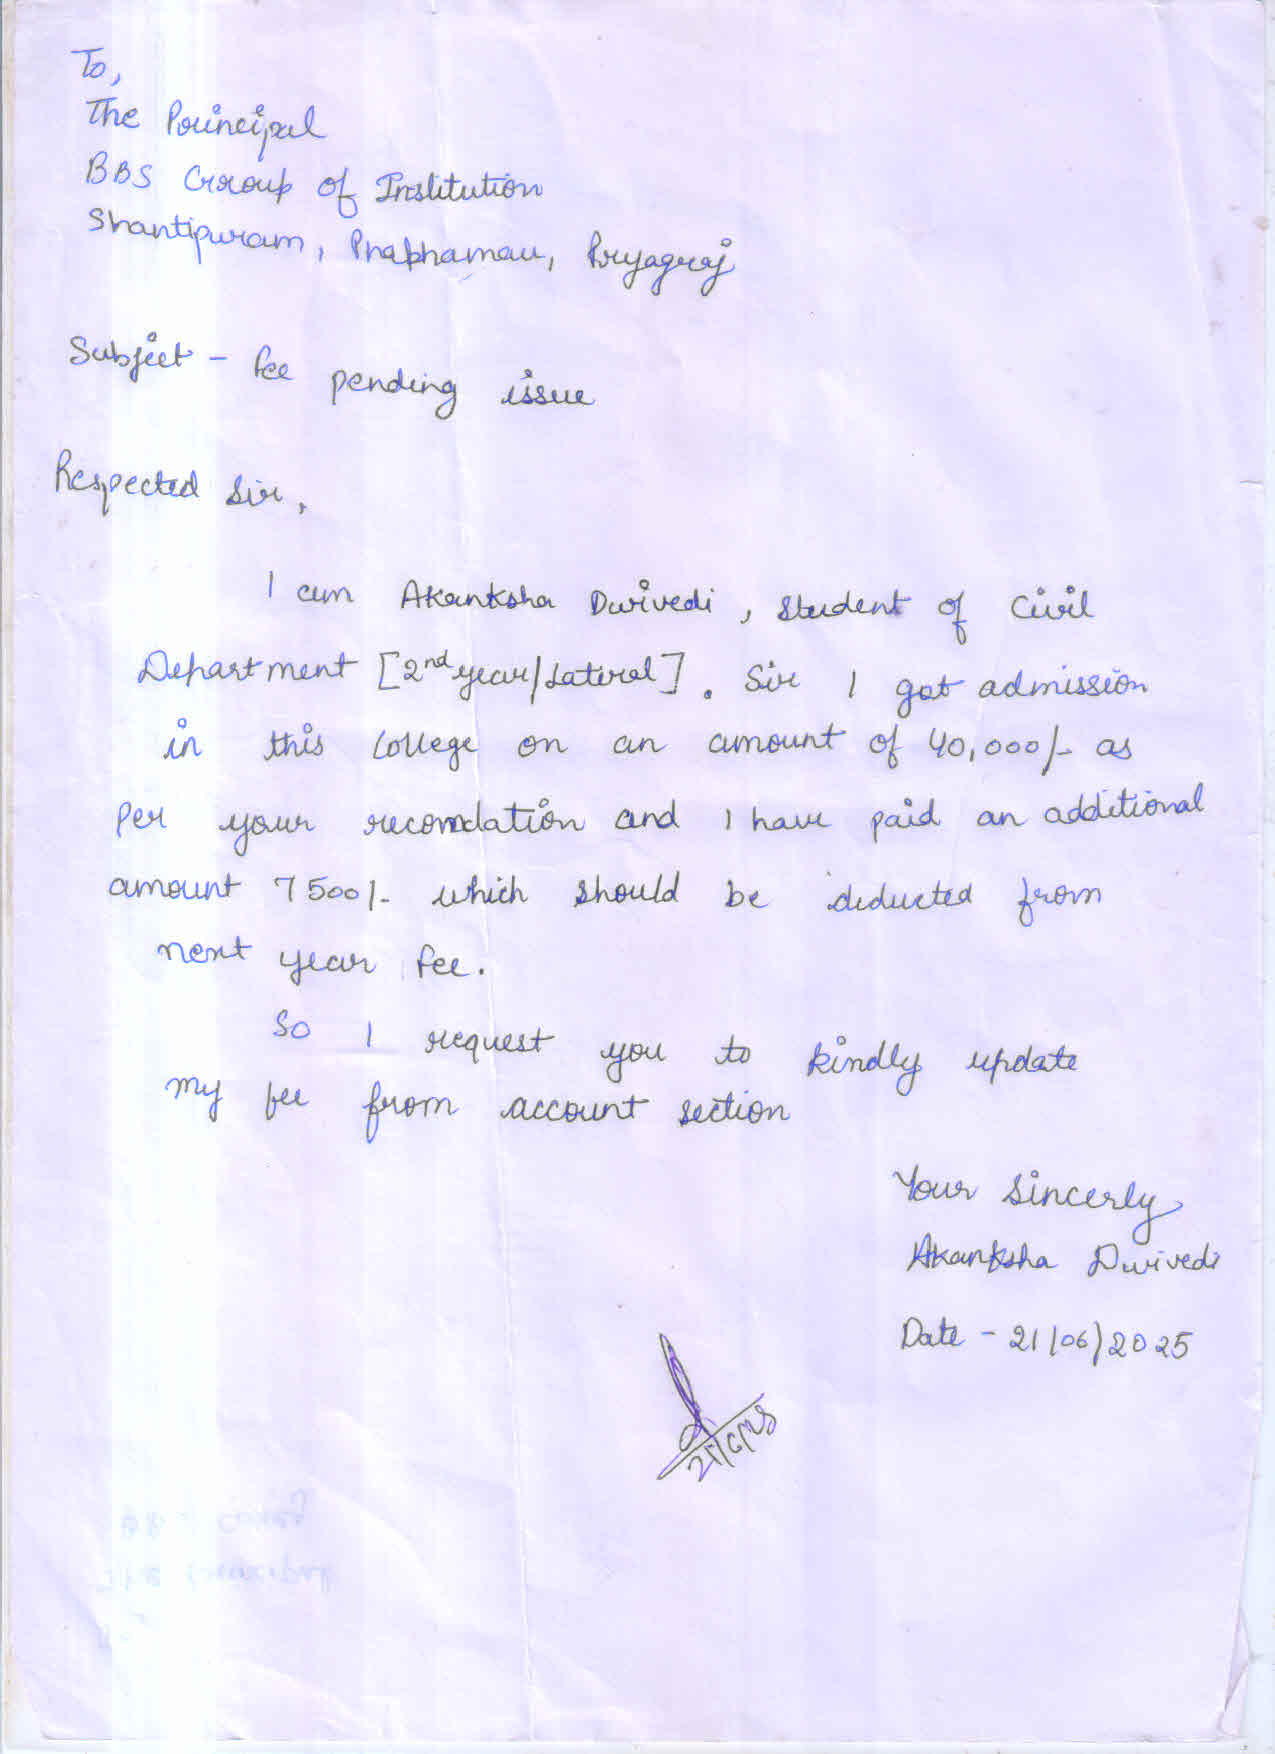 To,
The Principal
BBS Group of Institution
Shantipuram, Phaphamau, Pryagraj
Subject - fee pending issue
Respected Sir,
I am Akanksha Dwivedi, student of Civil
Department [2nd year/Lateral]. Sir I got admission
in this College on an amount of 40,000/- as
per your recomdation and I have paid an additional
amount 7500/- which should be deducted from
next year fee.
So I request you to kindly update
my fee from account section
Your Sincerly
Akanksha Dwivedi
Date - 21/06/2025